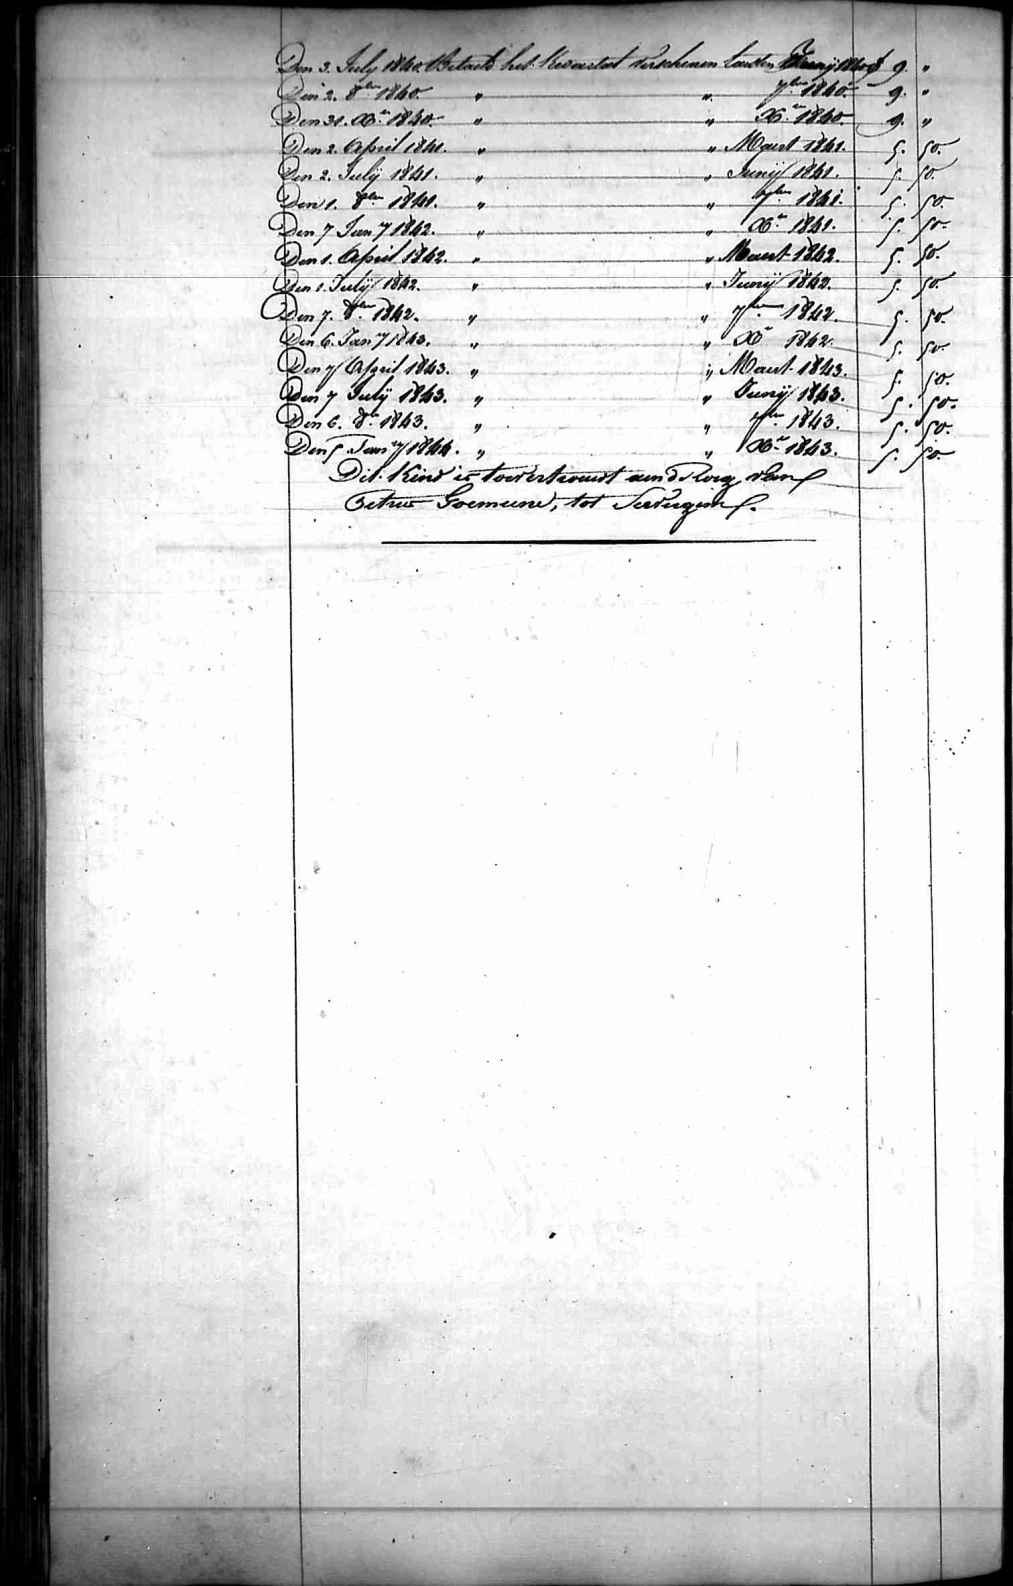 Den 3. July 1840. Betaald het Kwartaal verschenen laasten Junij 1840 f 9. "
Den 2. 8ber 1840. " " 7ber 1840. 9. "
Den 31. Xr 1840. " " Xr 1840. 9. "
Den 2. April 1841. " " Maert 1841. 5. 50.
Den 2. Julij 1841. " " Junij 1841. 5. 50.
Den 1. 8ber 1841. " " 7ber 1841. 5. 50.
Den 7 Jany 1842. " " Xr 1841. 5. 50.
Den 1. April 1842. " " Maert 1842. 5. 50.
Den 1. Julij 1842. " " Junij 1842. 5. 50.
Den 7. 8ber 1842. " " 7ber 1842. 5. 50.
Den 6. Jany 1843. " " Xr 1842. 5. 50.
Den 7 April 1843. " " Maert 1843. 5. 50.
Den 7 Julij 1843. " " Junij 1843. 5. 50.
Den 6. 8r 1843. " " 7ber 1843. 5. 50.
Den 5 Jany 1844. " " Xr 1843. 5. 50.
Dit Kind is toevertrouwt aen d zorg van
Petrus Goemeine, tot